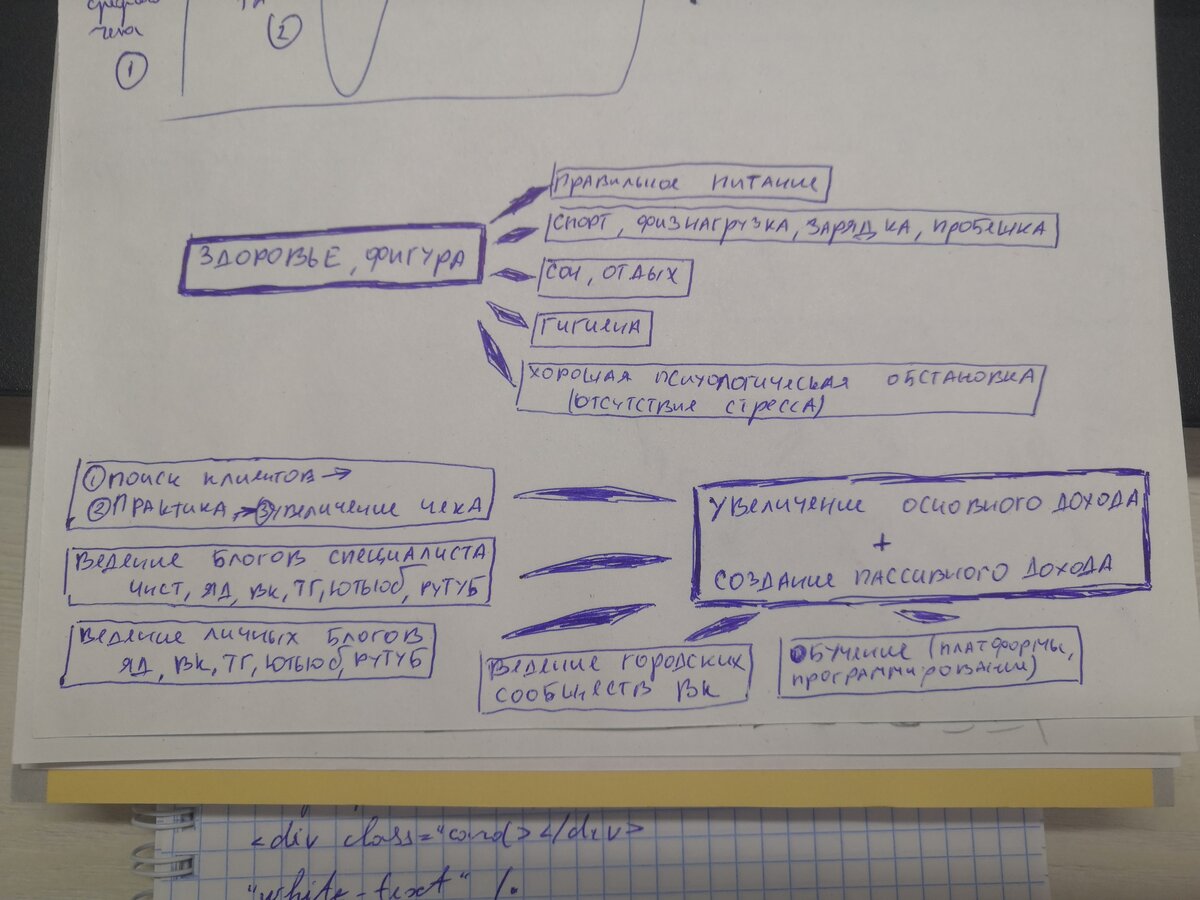 чека
①
②
ПРАВИЛЬНОЕ ПИТАНИЕ
СПОРТ, ФИЗНАГРУЗКА, ЗАРЯДКА, ПРОБЕШКА
ЗДОРОВЬЕ, ФИГУРА
СОН, ОТДЫХ
ГИГИЕНА
ХОРОШАЯ ПСИХОЛОГИЧЕСКАЯ ОБСТАНОВКА
(ОТСУТСТВИЕ СТРЕССА)
① ПОИСК КЛИЕНТОВ →
② ПРАКТИКА → ③ УВЕЛИЧЕНИЕ ЧЕКА
ВЕДЕНИЕ БЛОГОВ СПЕЦИАЛИСТА
ИНСТ, ЯД, ВК, ТГ, ЮТЬЮБ, РУТУБ
ВЕДЕНИЕ ЛИЧНЫХ БЛОГОВ
ЯД, ВК, ТГ, ЮТЬЮБ, РУТУБ
УВЕЛИЧЕНИЕ ОСНОВНОГО ДОХОДА
+
СОЗДАНИЕ ПАССИВНОГО ДОХОДА
ВЕДЕНИЕ ГОРОДСКИХ
СООБЩЕСТВ ВК
ОБУЧЕНИЕ (ПЛАТФОРМЫ,
ПРОГРАММИРОВАНИЕ)
<div class="card></div>
"white-text" /.